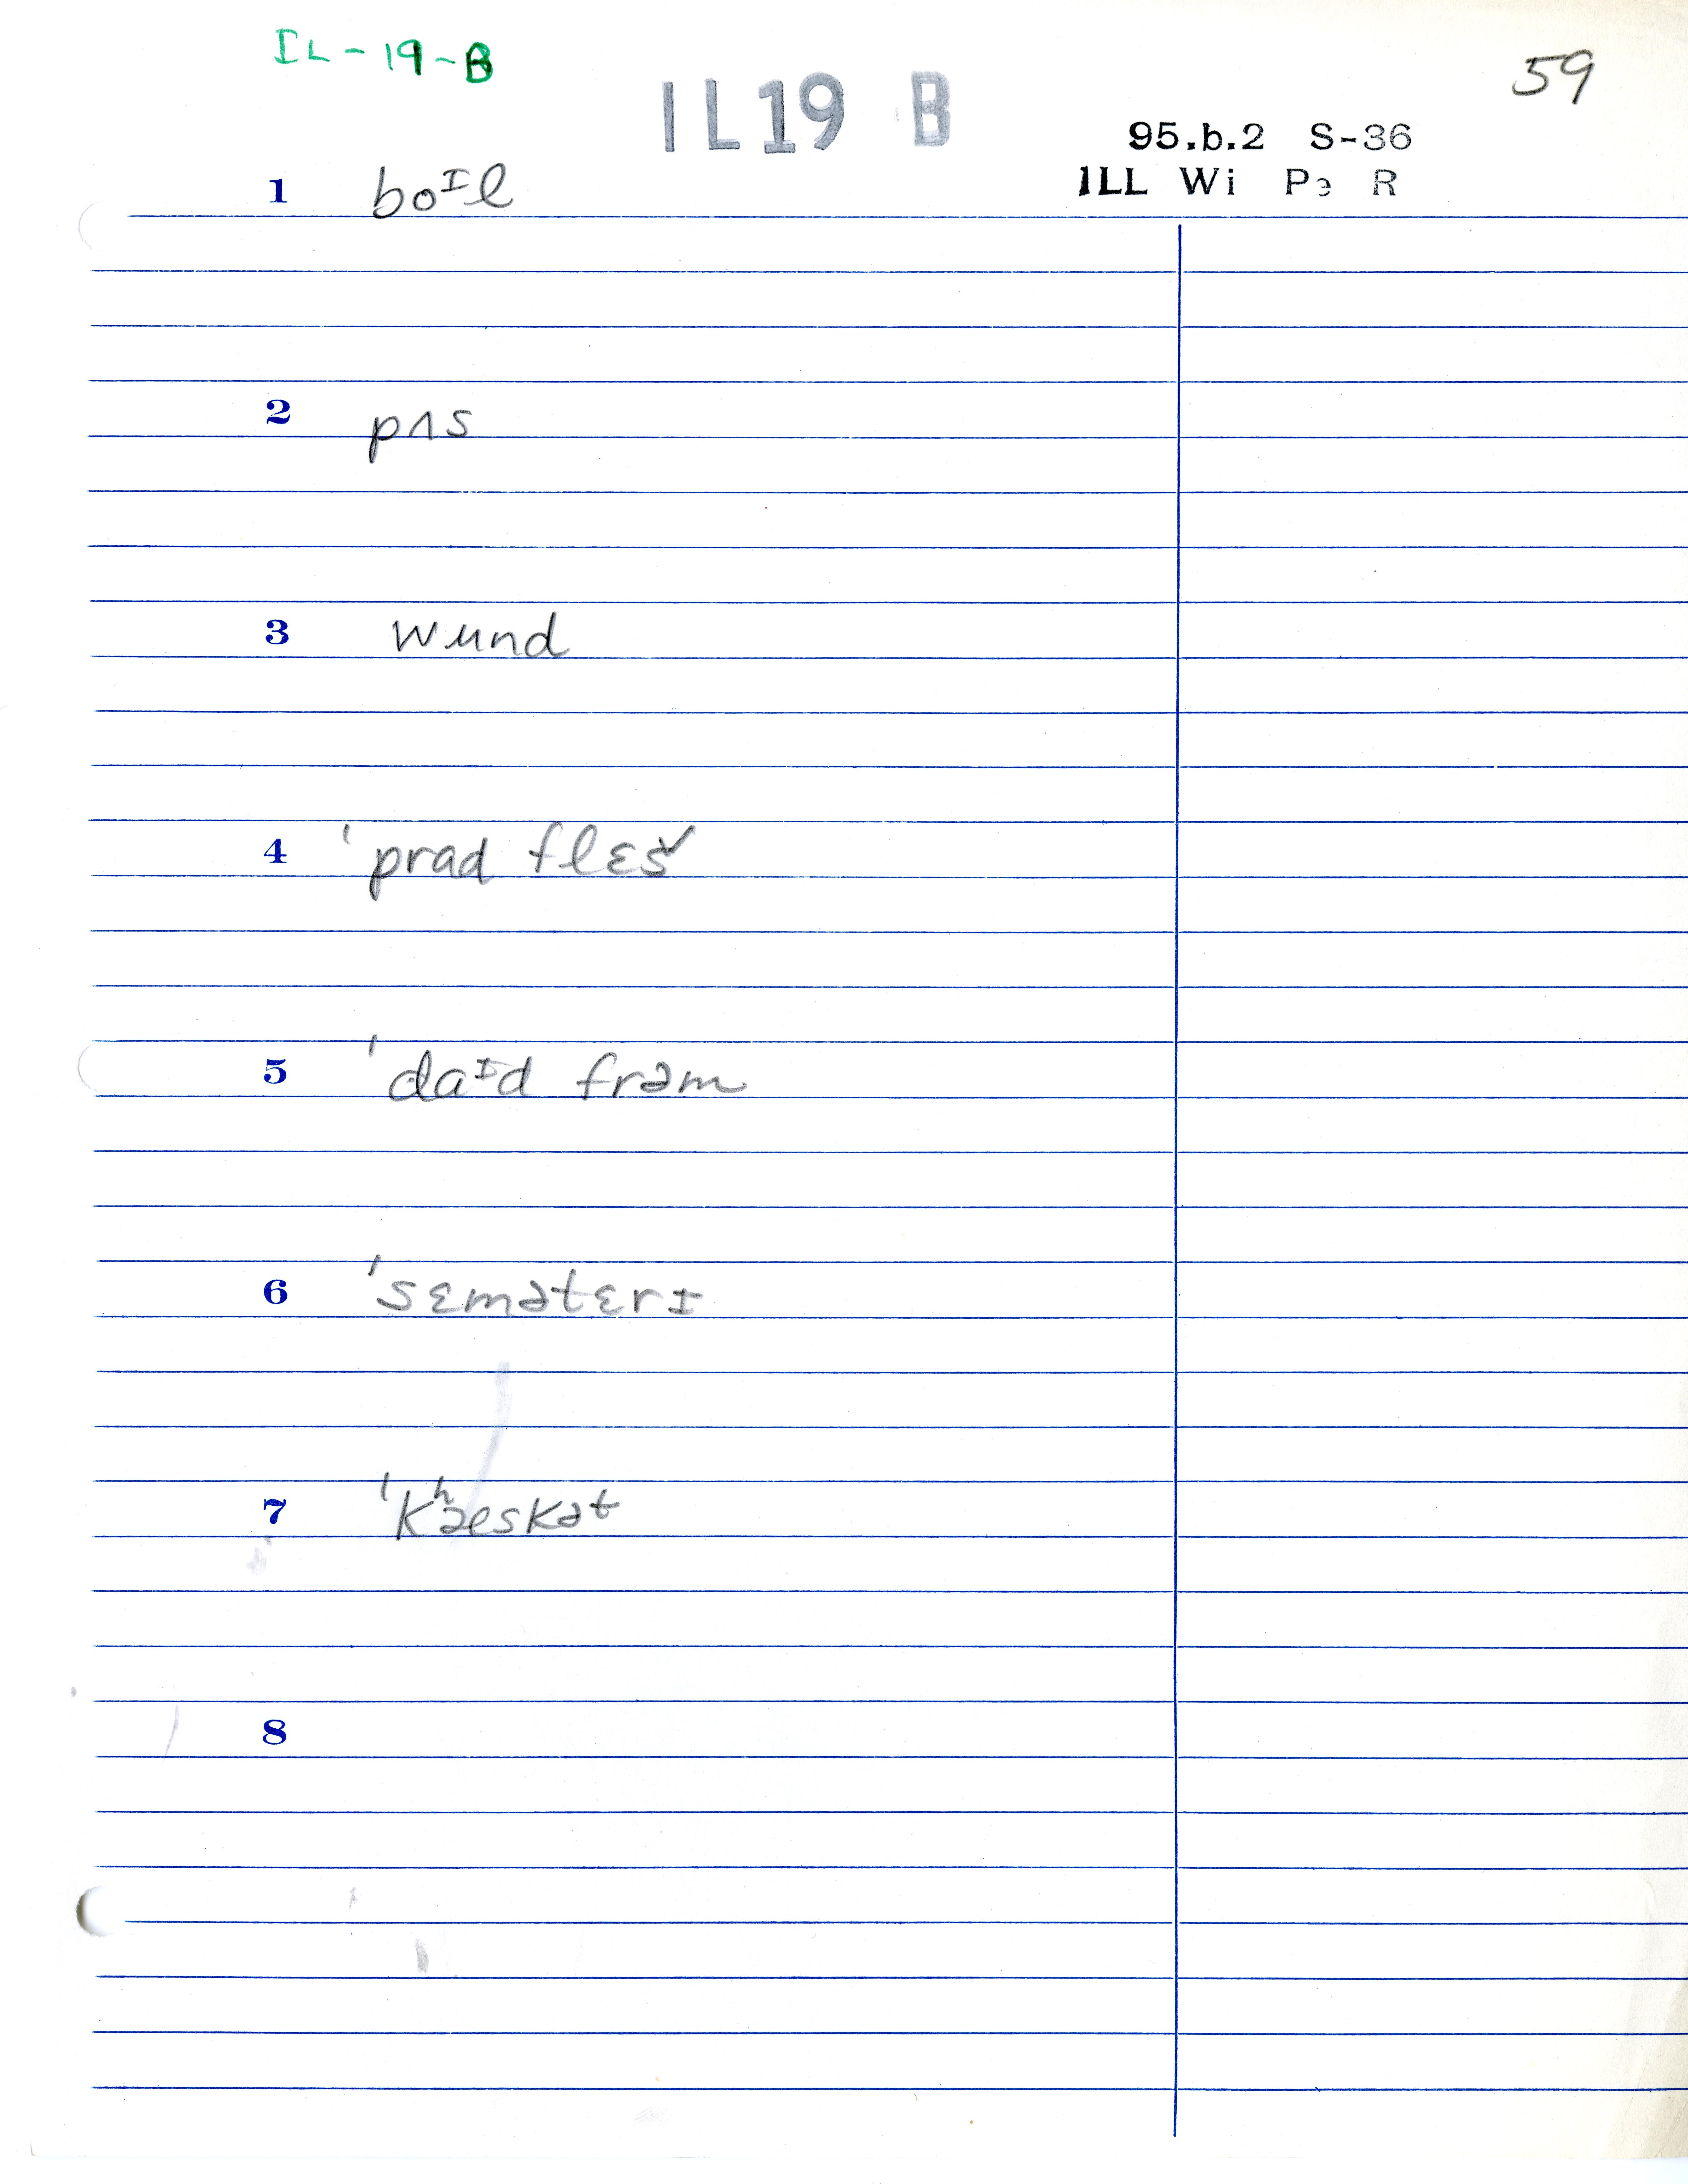 IL-19-B
59
IL19 B
95.b.2 S-36
ILL Wi Pɘ R
1 boᴵl
2 pʌs
3 wund
4 ˈprad flɛš
5 ˈdaᴵd frəm
6 ˈsɛmətɛrɪ
7 ˈkʰæskət
8